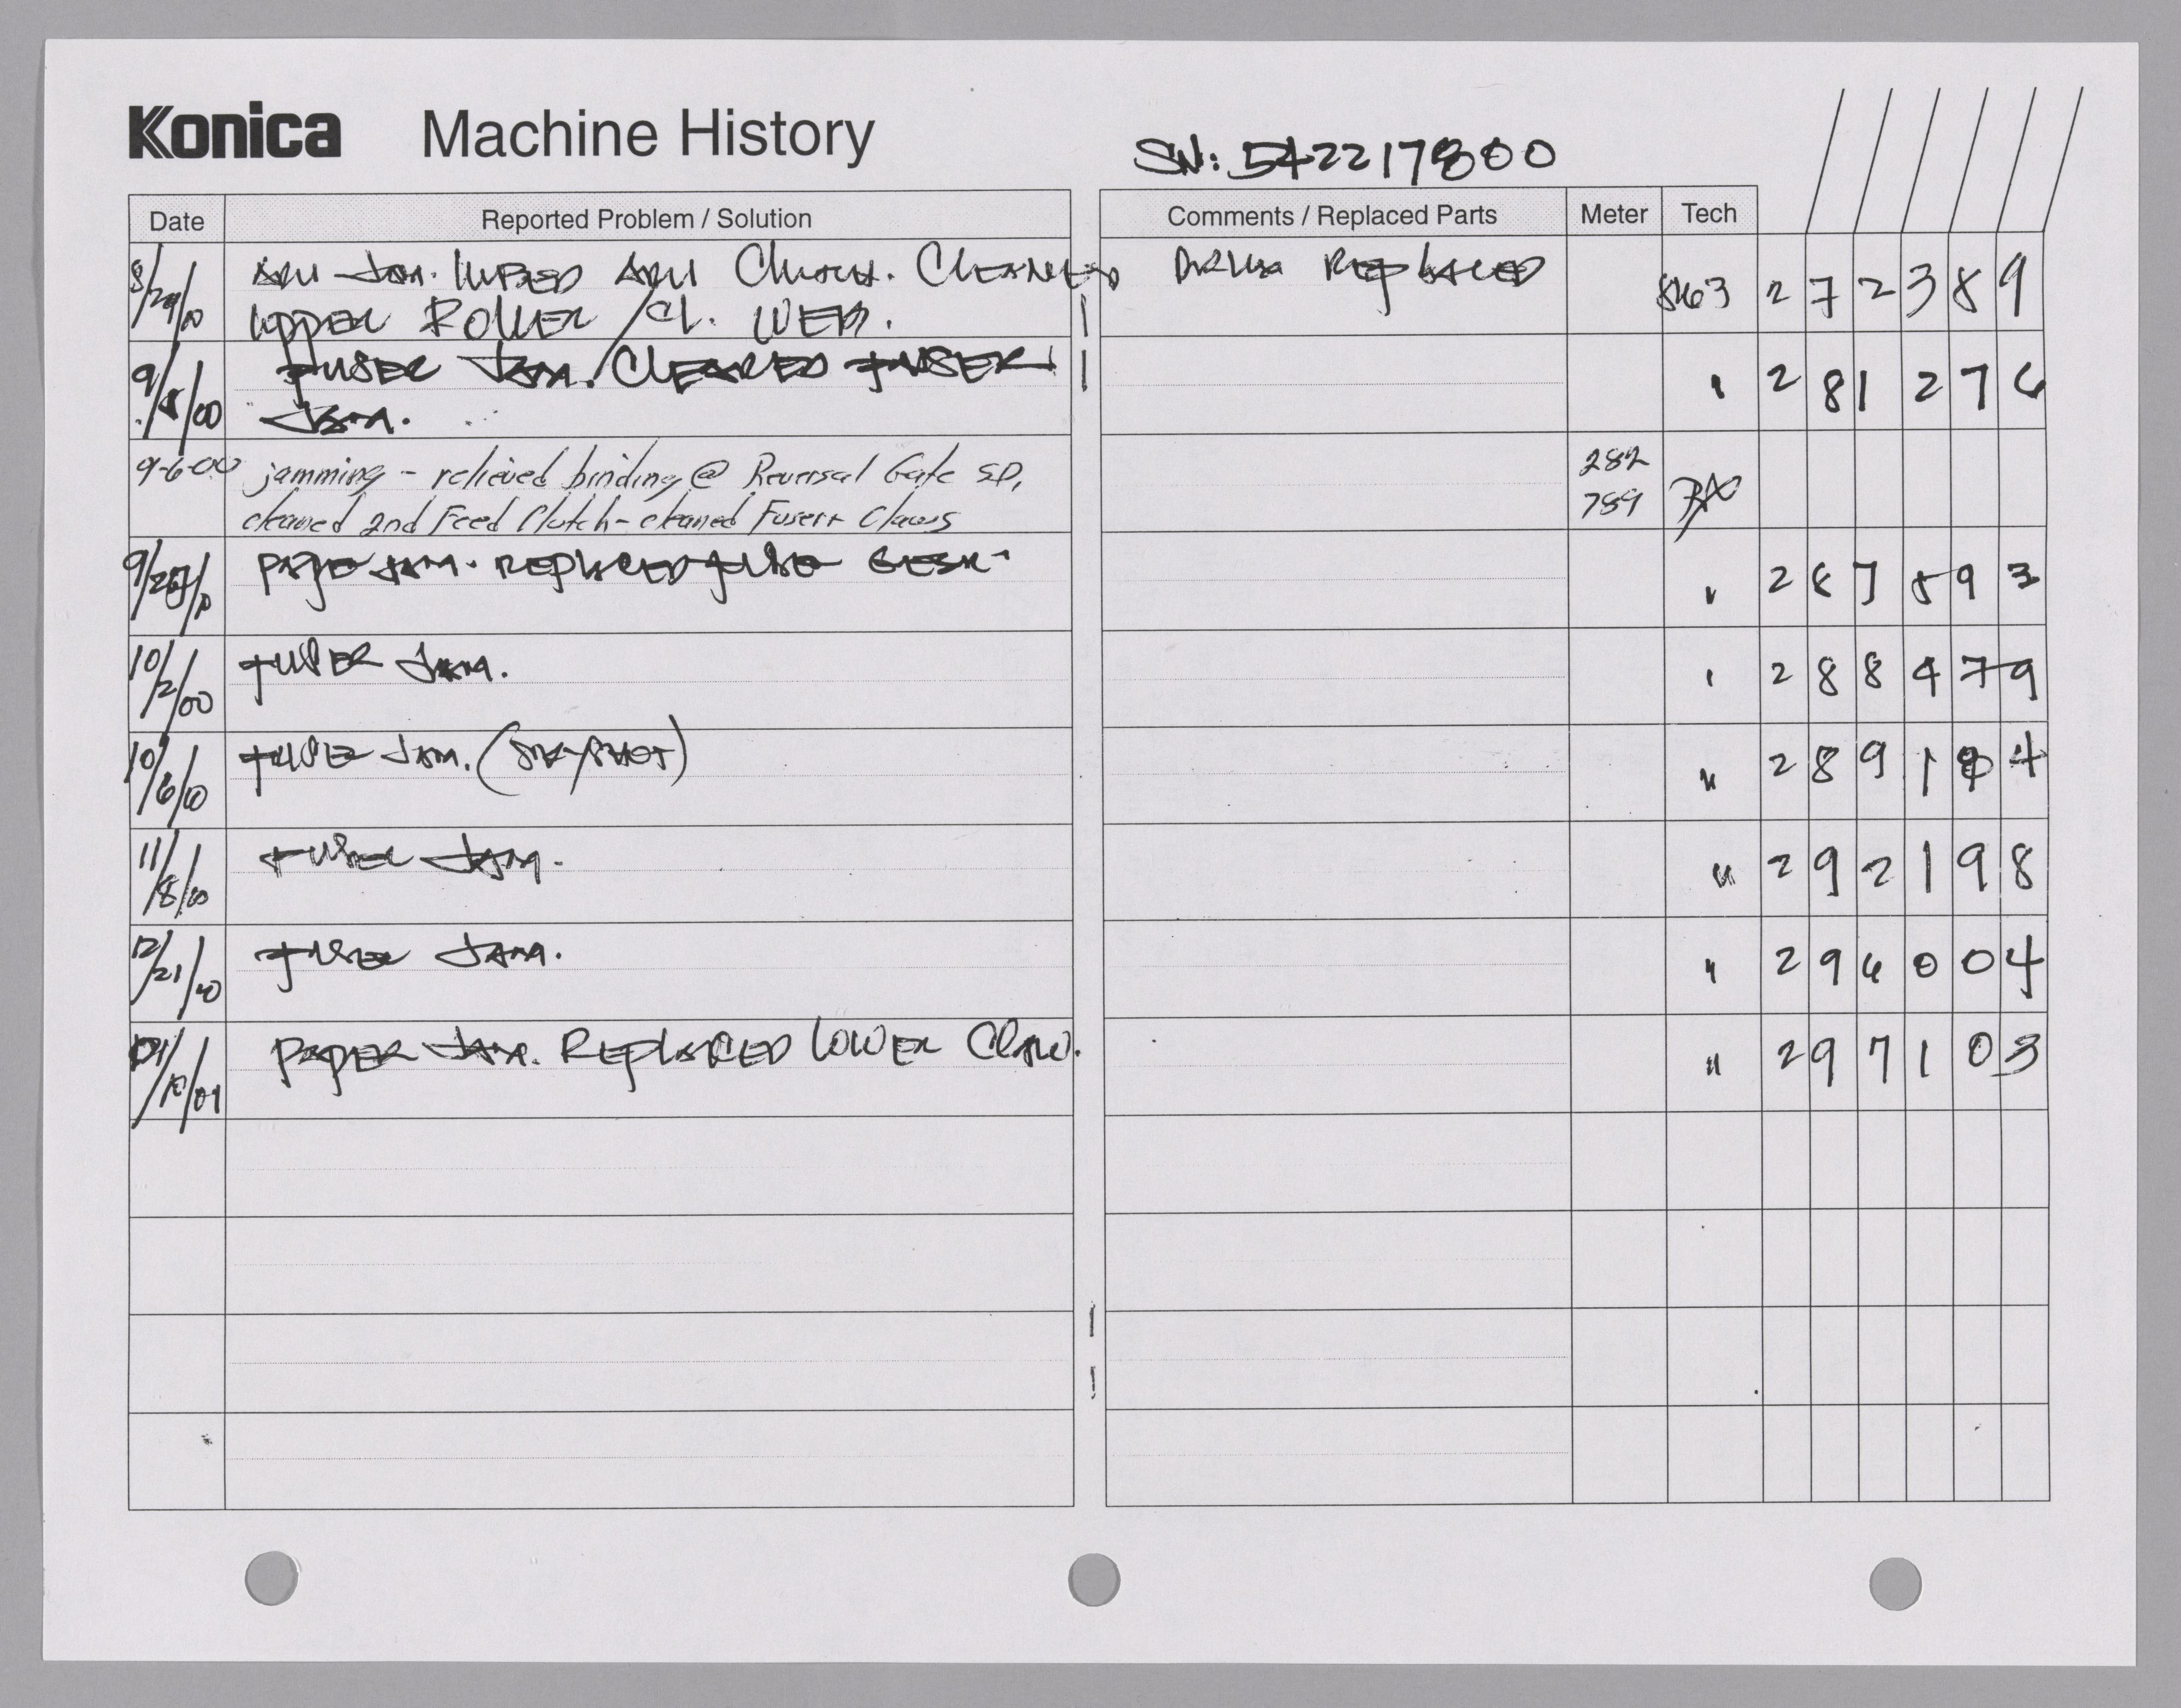 Konica Machine History
SN: 542217800
Date Reported Problem / Solution Comments / Replaced Parts Meter Tech
8/29/00 ADU JAM. LUBED ADU Clutch. CLEANED DRUM REPLACED 8163 2 7 2 3 8 9
UPPER ROLLER / Cl. WEB.
9/5/00 FUSER JAM. CLEARED FUSER " 2 8 1 2 7 6
JAM.
9-6-00 jamming - relieved binding @ Reversal Gate SD, 282
cleaned 2nd Feed Clutch - cleaned Fuser + Claws 789
PAPER JAM. REPLACED FUSE GEAR. " 2 8 7 5 9 3
10/2/00 FUSER JAM. " 2 8 8 4 7 9
10/6/00 FUSER JAM. " 2 8 9 1 4
11/8/00 FUSER JAM. " 2 9 2 1 9 8
12/21/00 FUSER JAM. " 2 9 6 0 0 4
01/10/01 PAPER JAM. REPLACED LOWER CLAW. " 2 9 7 1 0 3